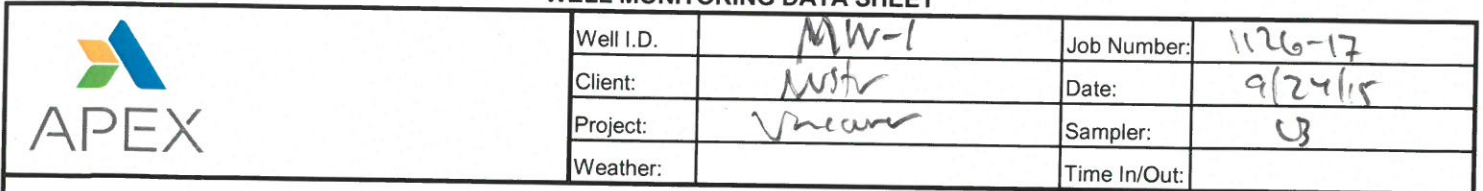 WELL MONITORING DATA SHEET
APEX
Well I.D. MW-1 Job Number: 1126-17
Client: Date: 9/24/15
Project: Sampler:
Weather: Time In/Out: